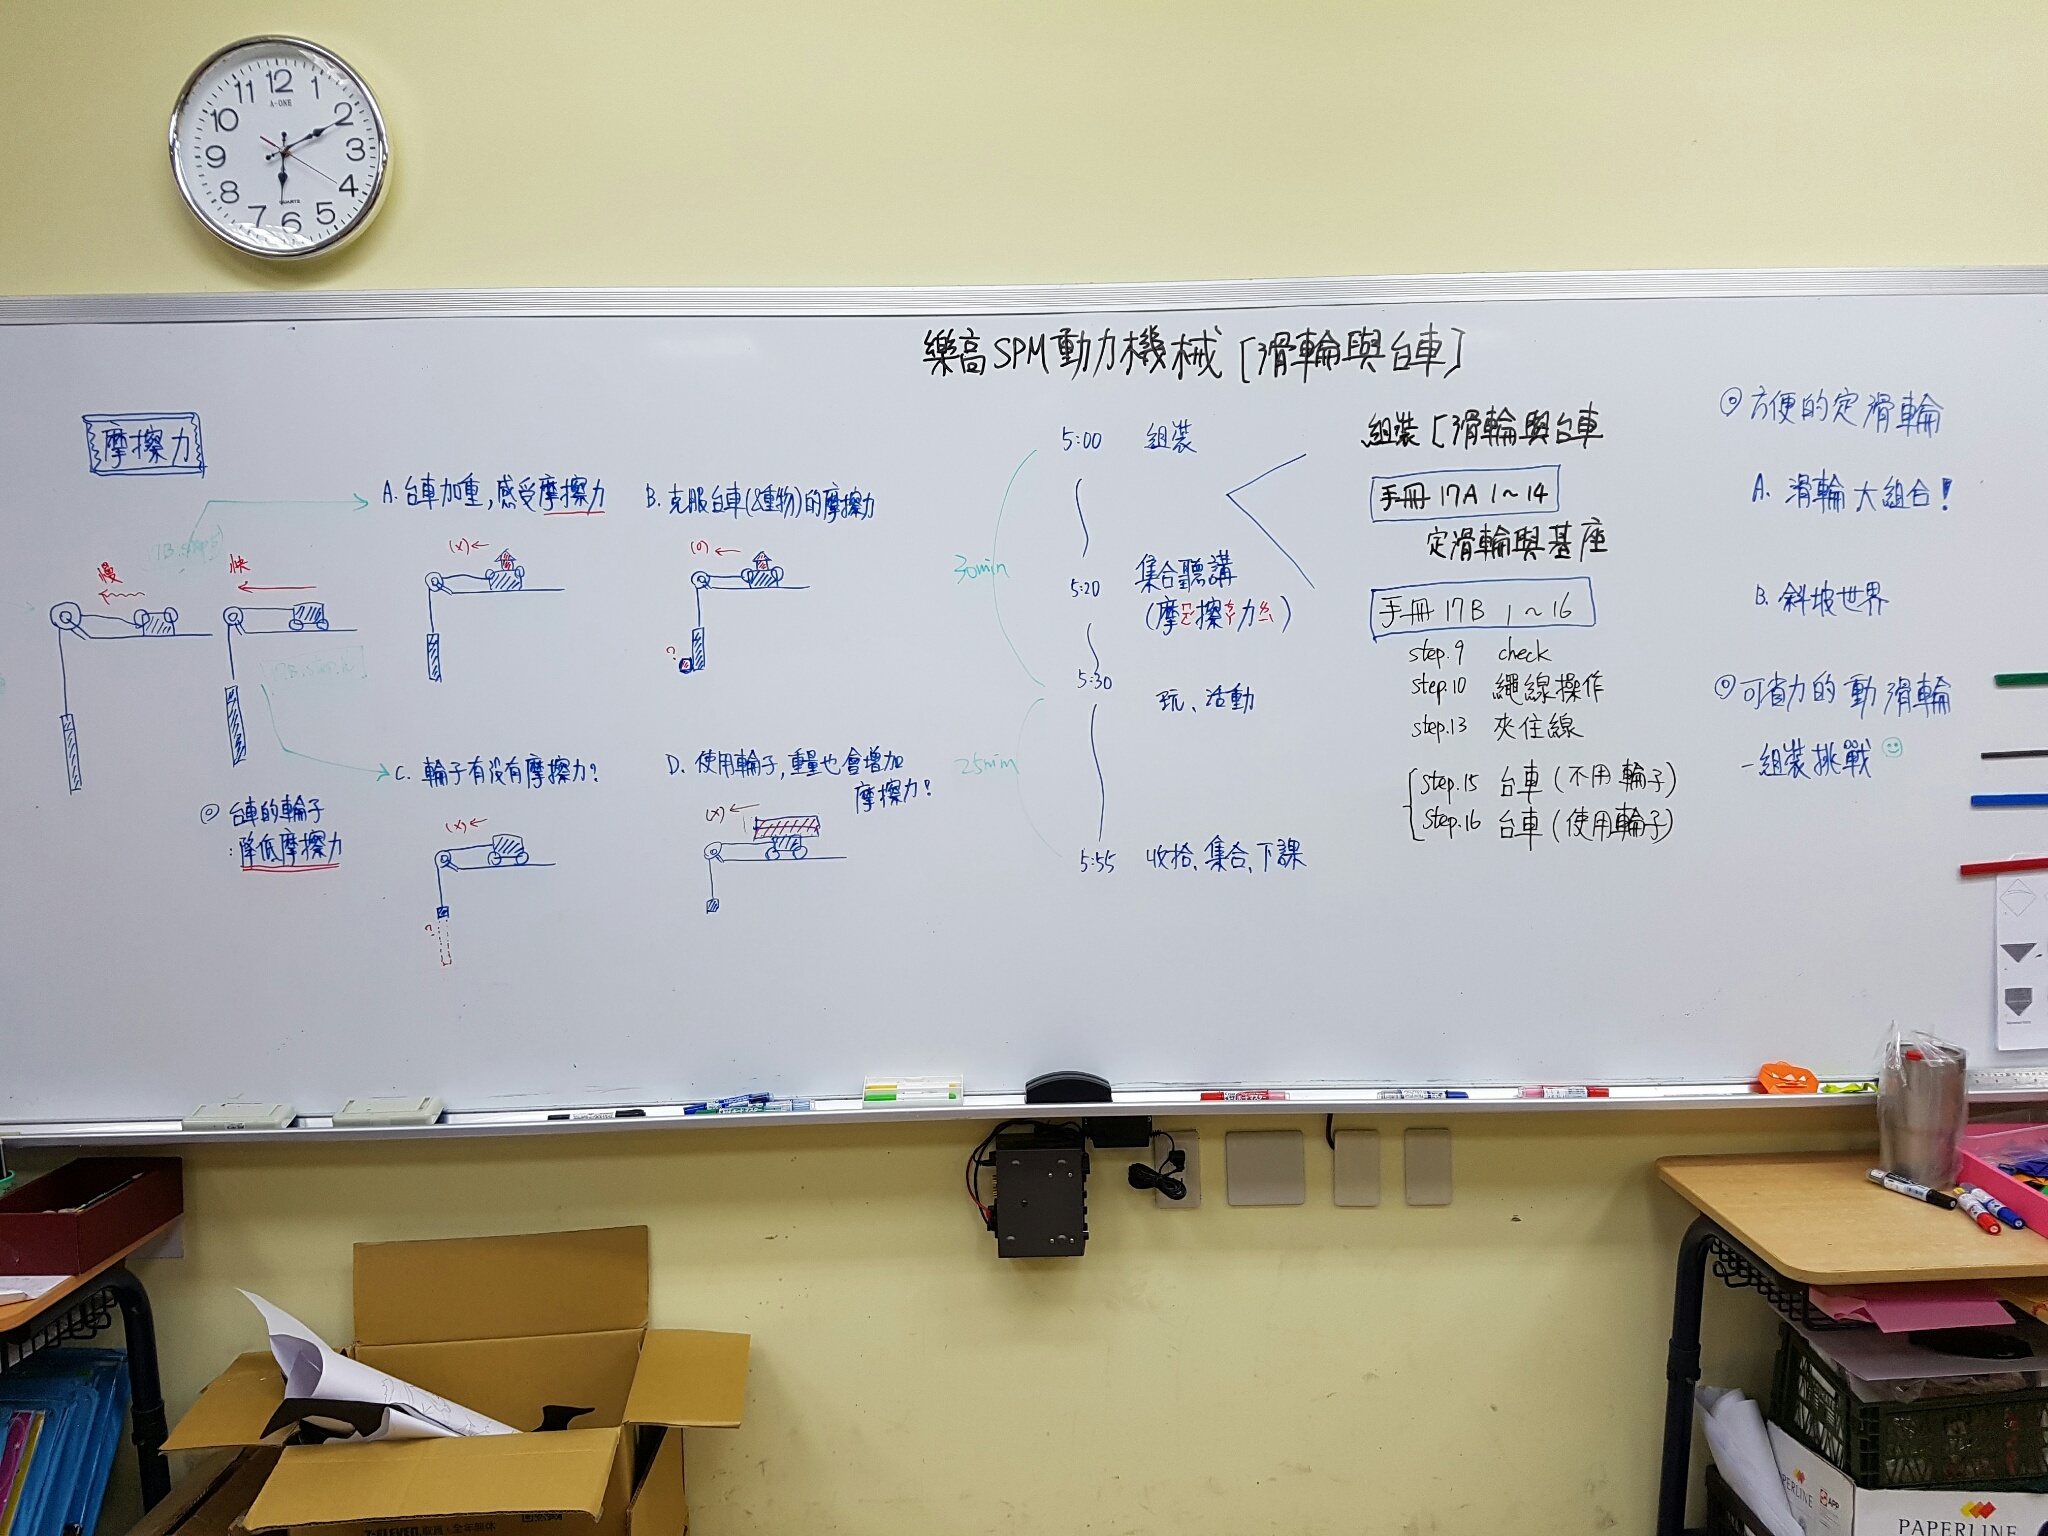 12
1
2
3
4
5
6
7
8
9
10
11
A-ONE
QUARTZ
樂高SPM動力機械[滑輪與台車]
摩擦力
慢
快
◎台車的輪子
:降低摩擦力
A. 台車加重,感受摩擦力
(x)←
B. 克服台車(&重物)的摩擦力
(o)←
?
C. 輪子有沒有摩擦力?
(x)←
?
D. 使用輪子,重量也會增加
摩擦力!
(x)←
5:00 組裝
30min
5:20 集合聽講
(摩擦力)
5:30 玩、活動
25min
5:55 收拾、集合、下課
組裝[滑輪與台車
手冊 17A 1~14
定滑輪與基座
手冊 17B 1~16
step.9 check
step.10 繩線操作
step.13 夾住線
step.15 台車(不用輪子)
step.16 台車(使用輪子)
◎方便的定滑輪
A. 滑輪大組合!
B. 斜坡世界
◎可省力的動滑輪
-組裝挑戰
7-ELEVEN
PAPERLINE
PAPERLINE